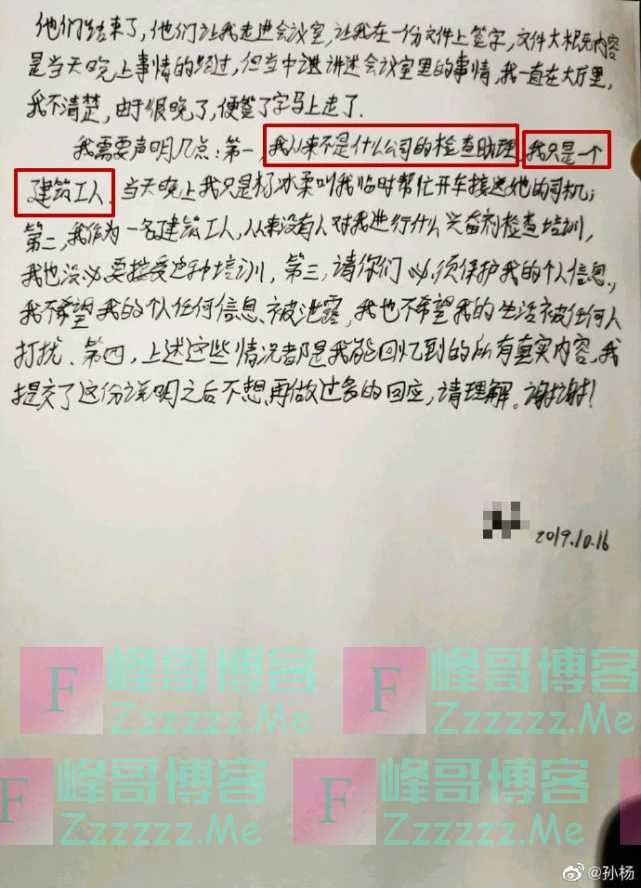 他们结束了，他们让我走进会议室，让我在一份文件上签字，文件大概无内容
是当天晚上事情的经过，但当中讲述会议室里的事情，我一直在大厅里，
我不清楚，由于很晚了，便签了字马上走了．
我需要声明几点：第一，我从来不是什么公司的检查助理，我只是一个
建筑工人，当天晚上我只是杨冰柔叫我临时帮忙开车接送她的司机；
第二，我作为一名建筑工人，从来没有人对我进行什么兴奋剂检查培训，
我也没必要接受这种培训，第三，请你们必须保护我的个人信息，
我不希望我的个人任何信息被泄露，我也不希望我的生活被任何人
打扰、第四，上述这些情况都是我能回忆到的所有真实内容，我
提交了这份说明之后不想再做过多的回应，请理解。谢谢！
2019.10.16
F 峰哥博客 F 峰哥博客
Zzzzzz.Me Zzzzzz.Me
峰哥博客 F 峰哥博客
Zzzzzz.Me Zzzzzz.Me
@孙杨